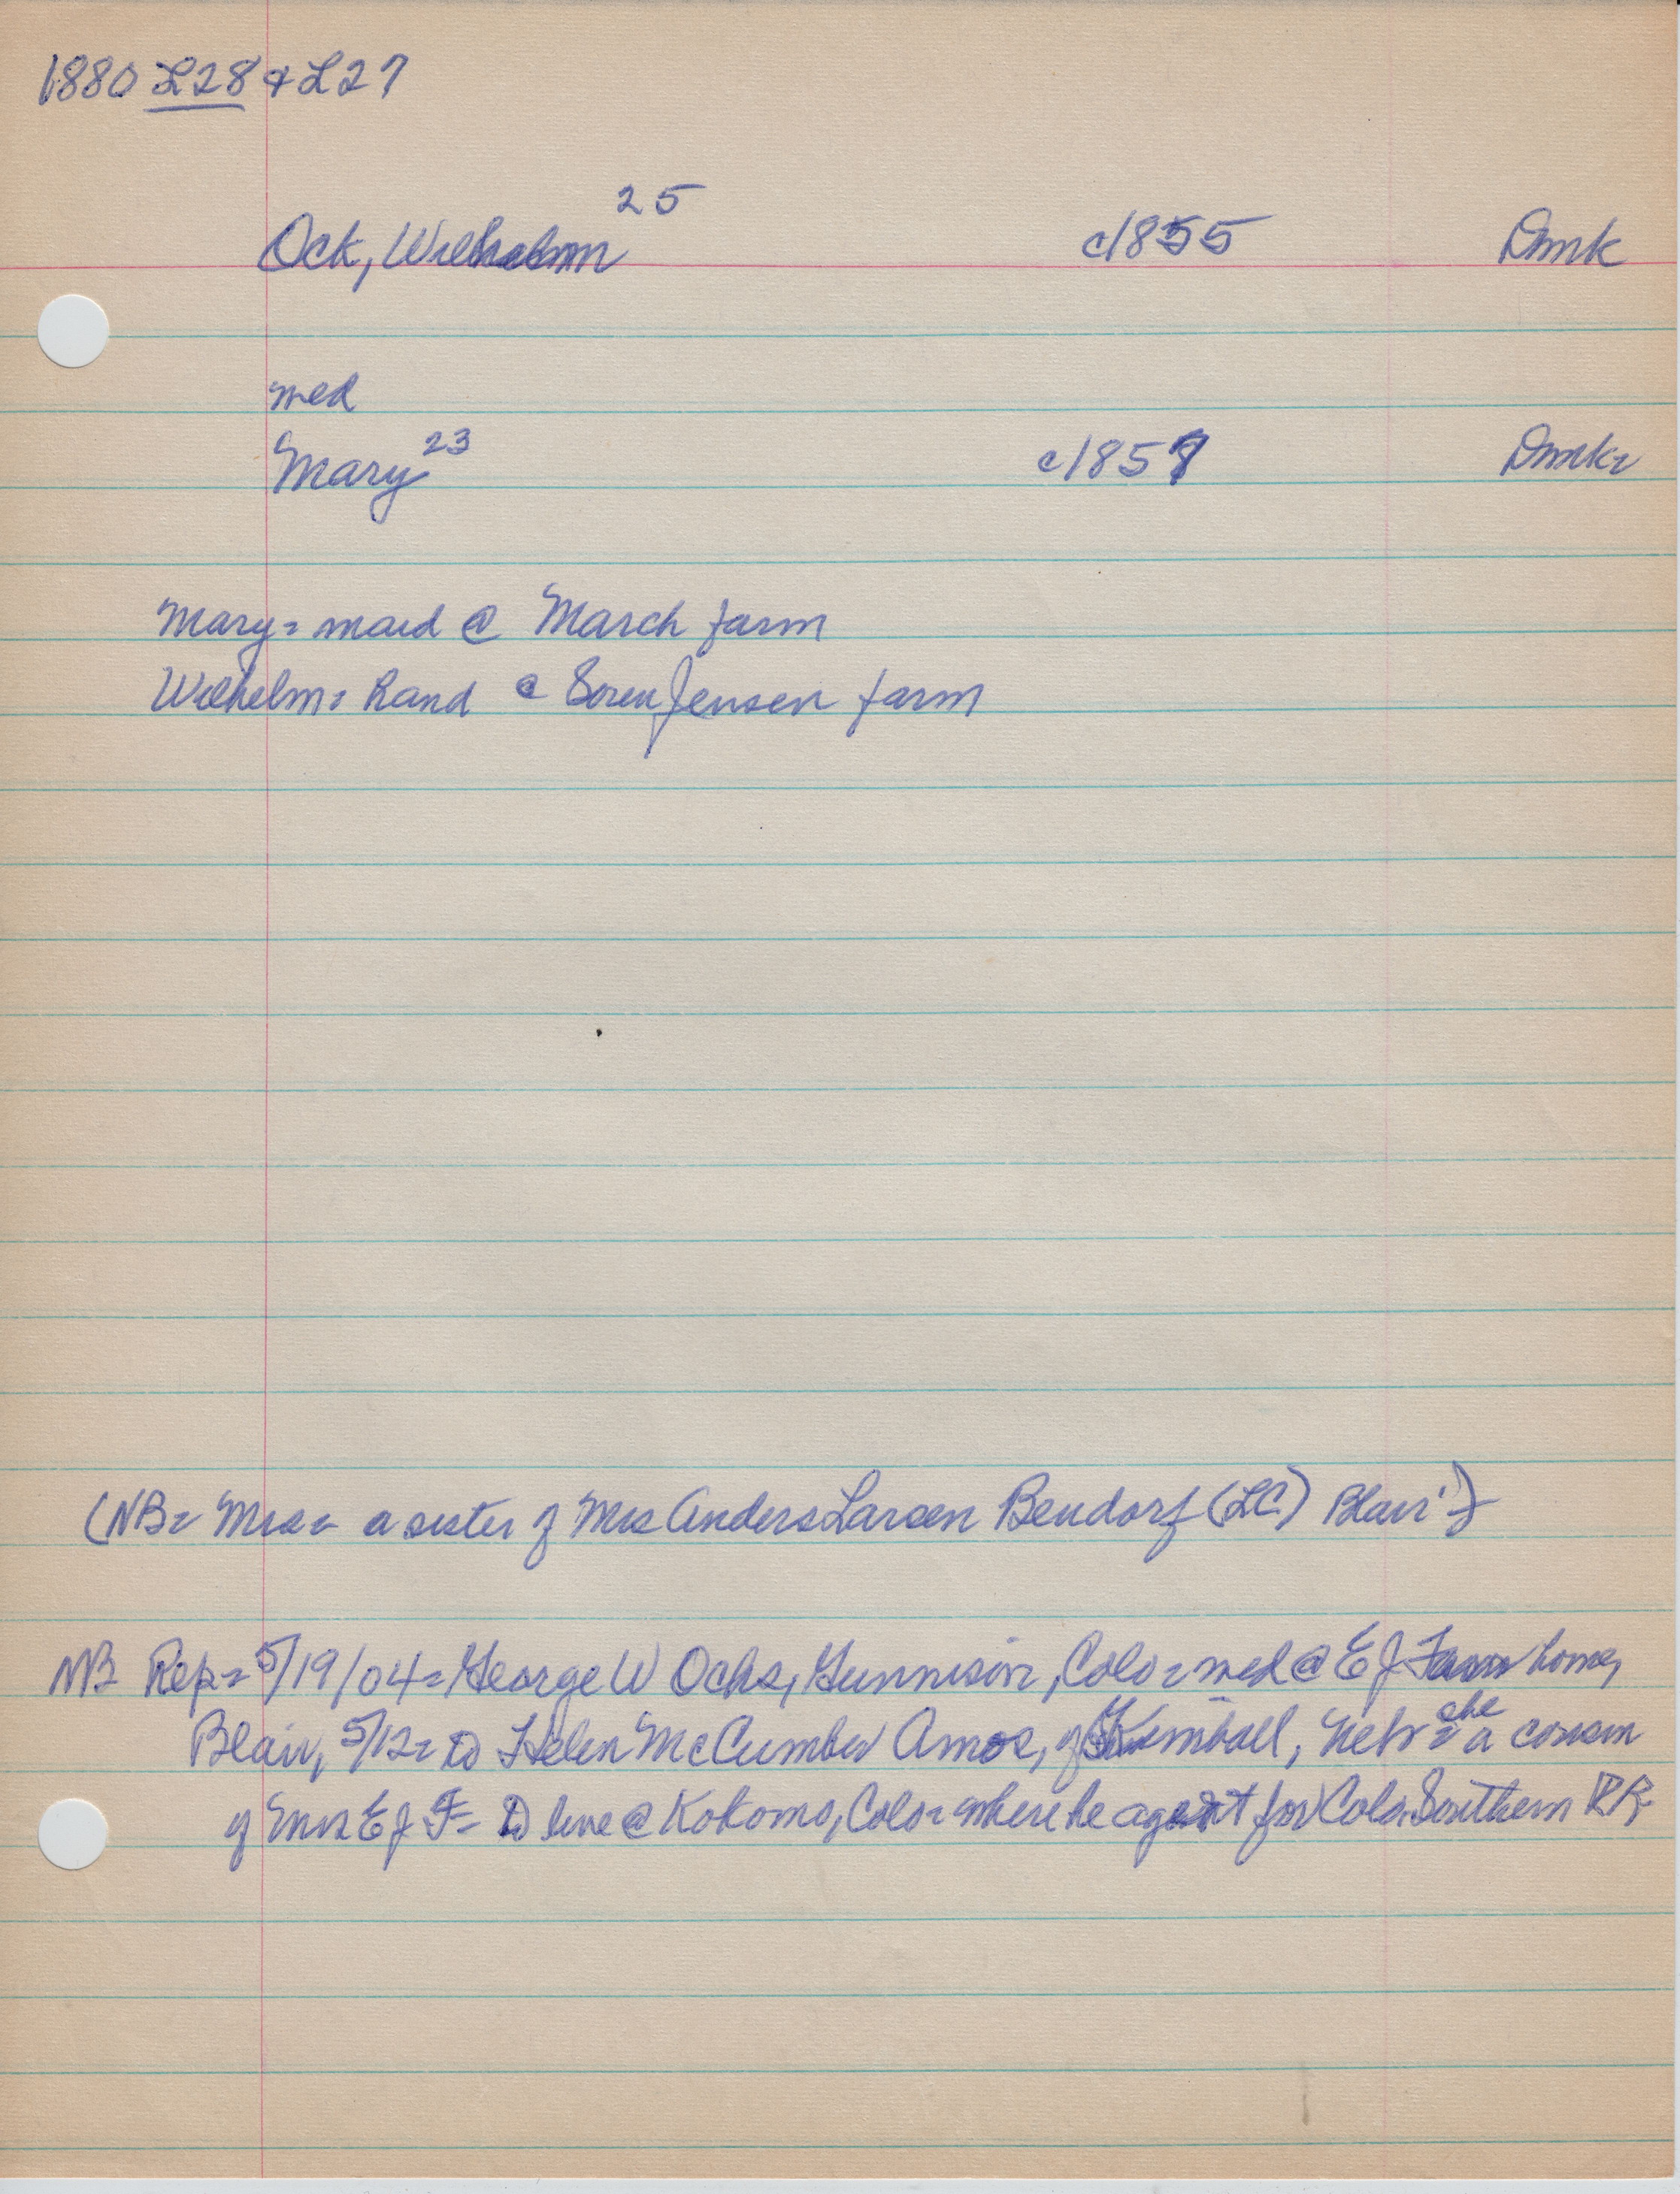 1880 L28 & L27
Ock, Wilhelm 25 c1855 Dmk
med
Mary 23 c1857 Dmk
Mary = maid @ March farm
Wilhelm = hand @ Soren Jensen farm
(NB = Mrs = a sister of Mrs Anders Larsen Bendorf (LC) Blair)
NB Rep = 5/19/04 = George W Ochs, Gunnison, Colo = med @ E J home,
Blair, 5/12 = to Helen McCumber Amos, of Kimball, Nebr = she a cousin
of Mrs E J F = to live @ Kokomo, Colo = where he agent for Colo. Southern RR